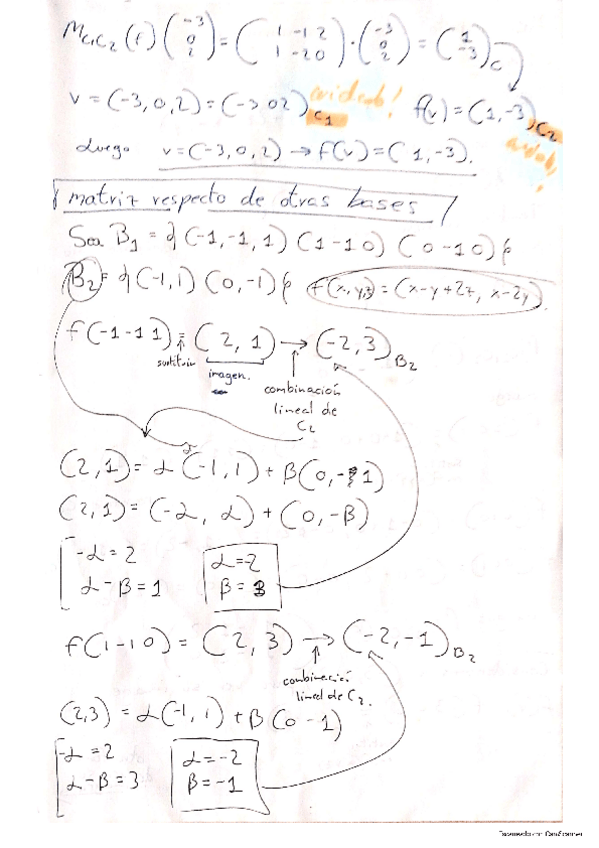 M_{C₁C₂}(f) (-3 0 2) = (1 -1 2 1 -2 0) · (-3 0 2) = (1 -3)_C
v = (-3, 0, 2) = (-3 0 2)_{C₁} f(v) = (1, -3)_{C₂}
Luego v = (-3, 0, 2) → f(v) = (1, -3).
matriz respecto de otras bases
Sea B₁ = {(-1, -1, 1) (1 -1 0) (0 -1 0)}
B₂ = {(-1, 1) (0, -1)} f(x, y, z) = (x-y+2z, x-2y).
f(-1 -1 1) = (2, 1) → (-2, 3)_{B₂}
sustituir
imagen.
combinación
lineal de
C₂
(2, 1) = α(-1, 1) + β(0, -1)
(2, 1) = (-α, α) + (0, -β)
-α = 2 α = -2
α - β = 1 β = 3
f(1 -1 0) = (2, 3) → (-2, -1)_{B₂}
combinación
lineal de C₂.
(2, 3) = α(-1, 1) + β(0 -1)
-α = 2 α = -2
α - β = 3 β = -1